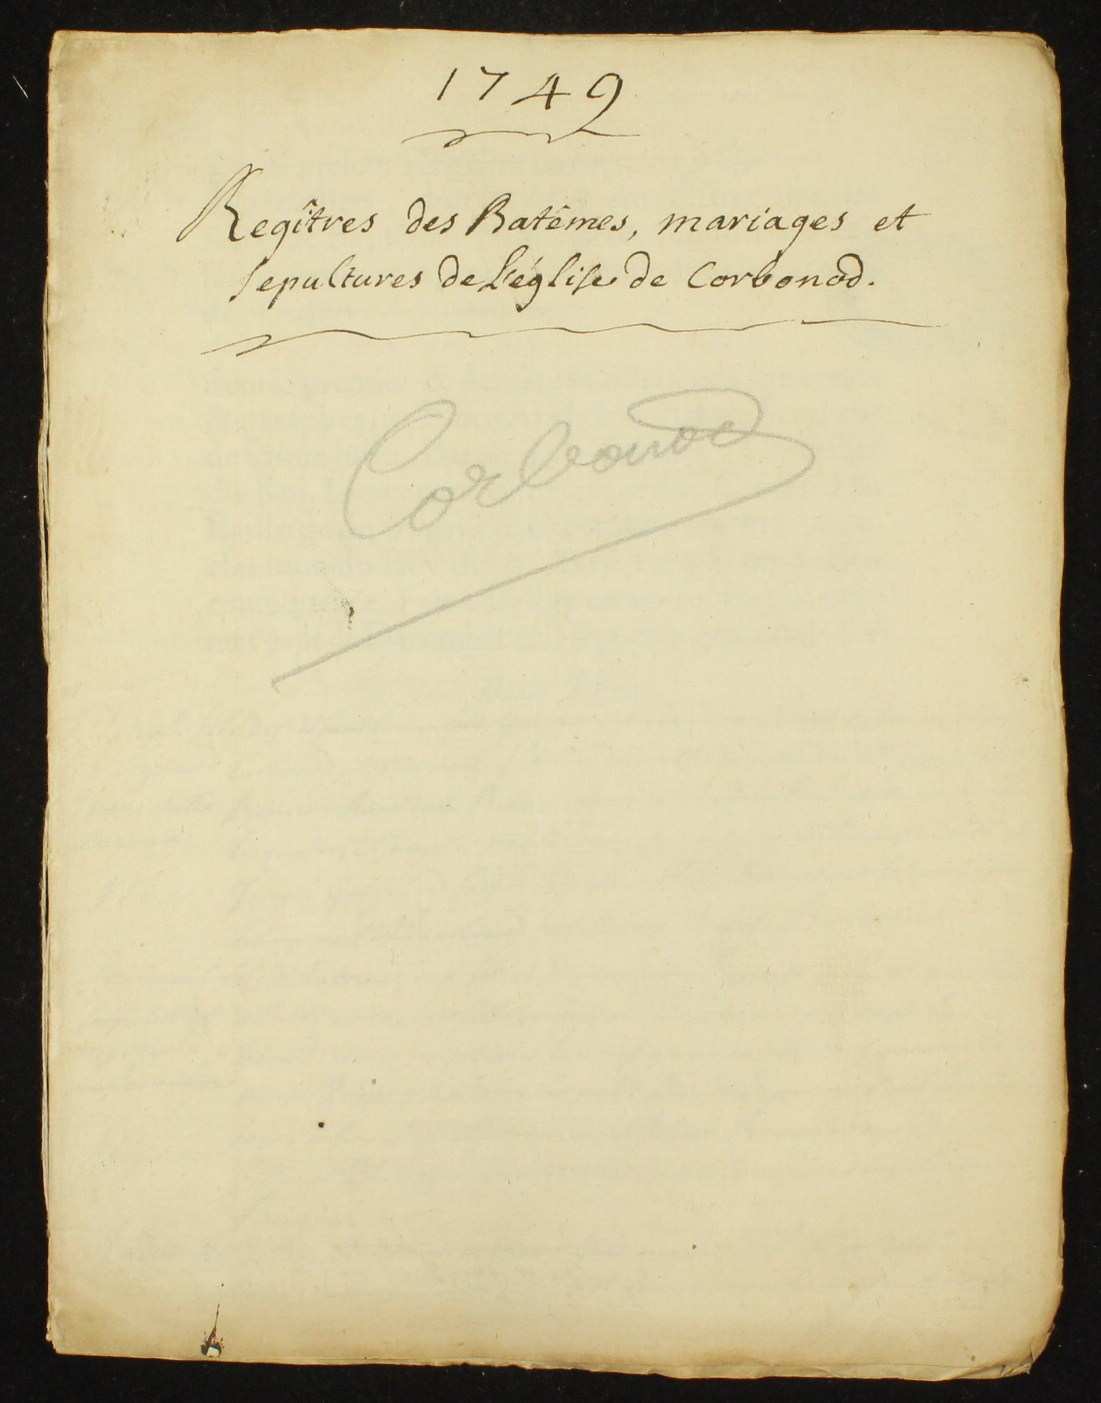 1749
Regîtres des Batêmes, mariages et
sepultures de L'église de Corbonod.
Corbonod